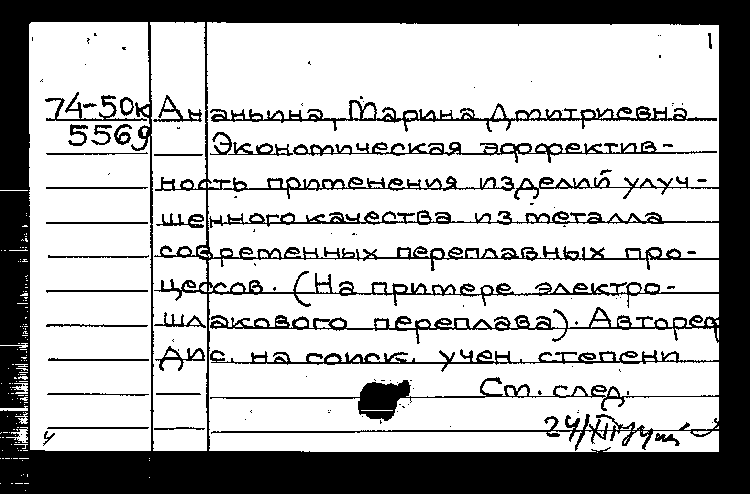 1
74-50к Ананьина, Марина Дмитриевна
5569 Экономическая эффектив-
ность применения изделий улуч-
шенного качества из металла
современных переплавных про-
цессов. (На примере электро-
шлакового переплава). Автореф
дис. на соиск. учен. степени
См. след.
24/XII